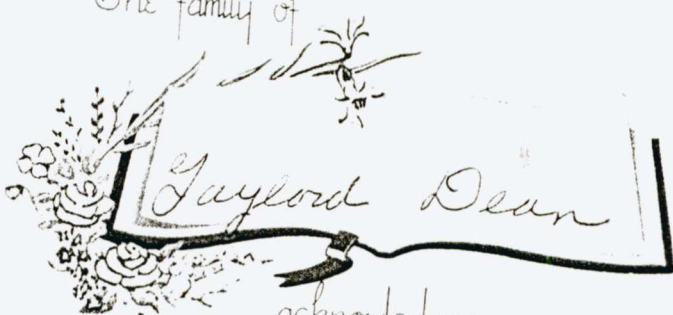 The family of
Gaylord Dean